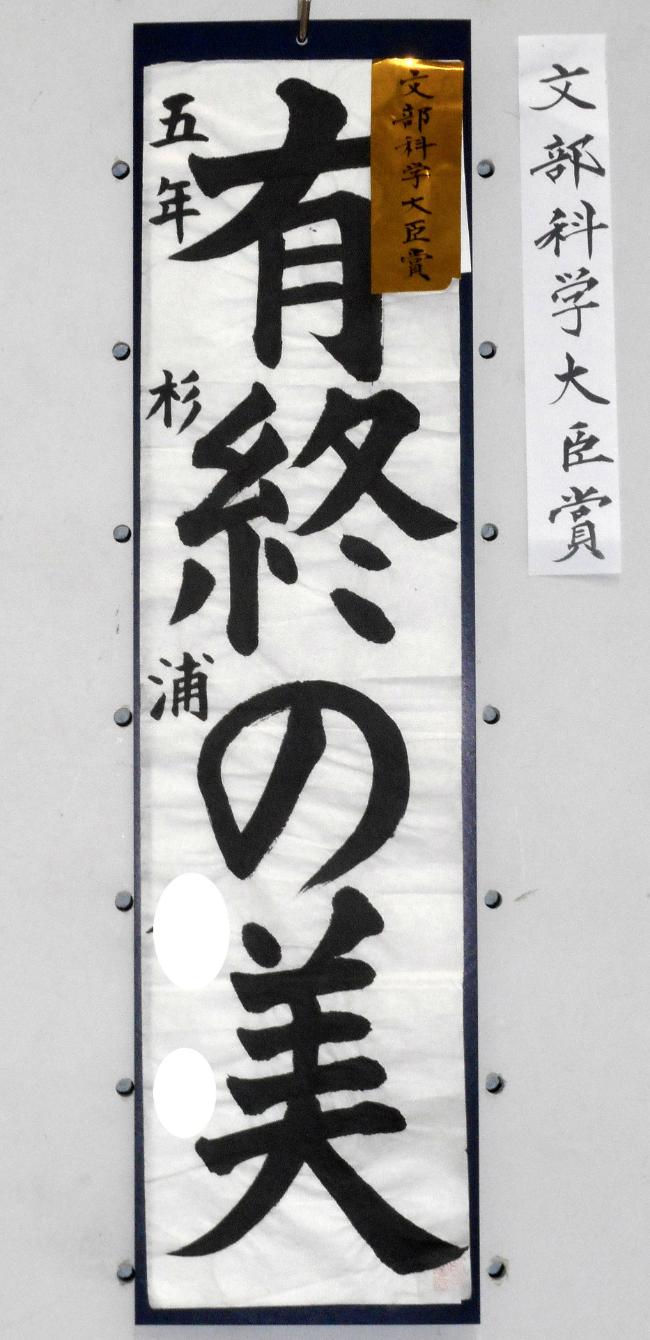 文部科学大臣賞
文部科学大臣賞
有終の美
五年 杉浦